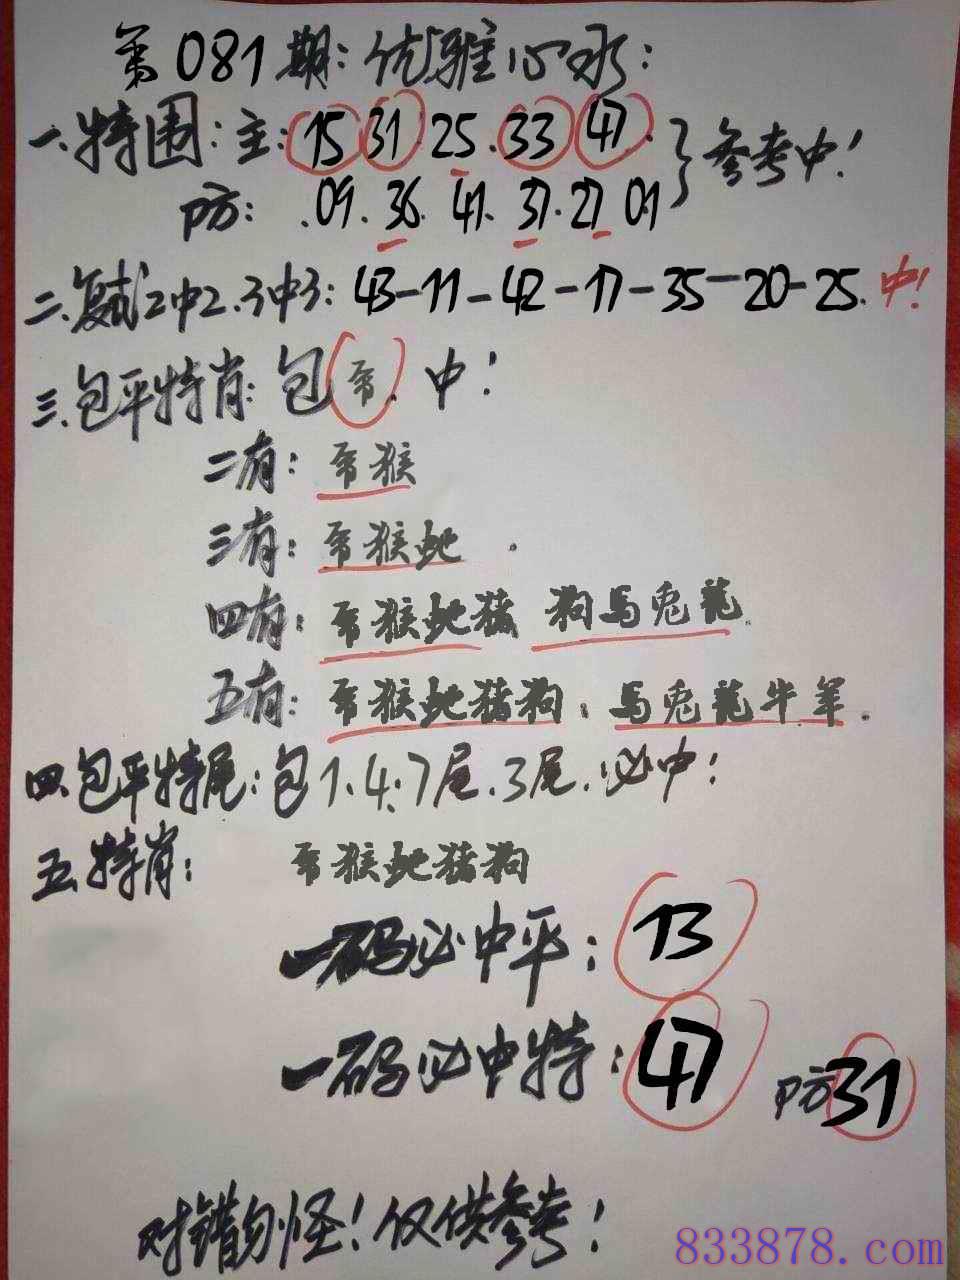 第081期:优雅心水:
一.特围:主:15 31 25.33 47.
防: .09.36. 41. 37.27 01 } 参考中!
二.复式2中2.3中3: 43-11-42-17-35-20-25. 中!
三.包平特肖: 包 . 中!
二有: 猴
三有: 猴蛇 .
四有: 猴蛇猪 狗马兔龍.
五有: 猴蛇猪狗. 马兔龍牛羊.
四.包平特尾:包1.4.7尾.3尾.必中!
五.特肖: 猴蛇猪狗
一码必中平: 13
一码必中特: 47 防31
对错勿怪!仅供参考!
833878.com